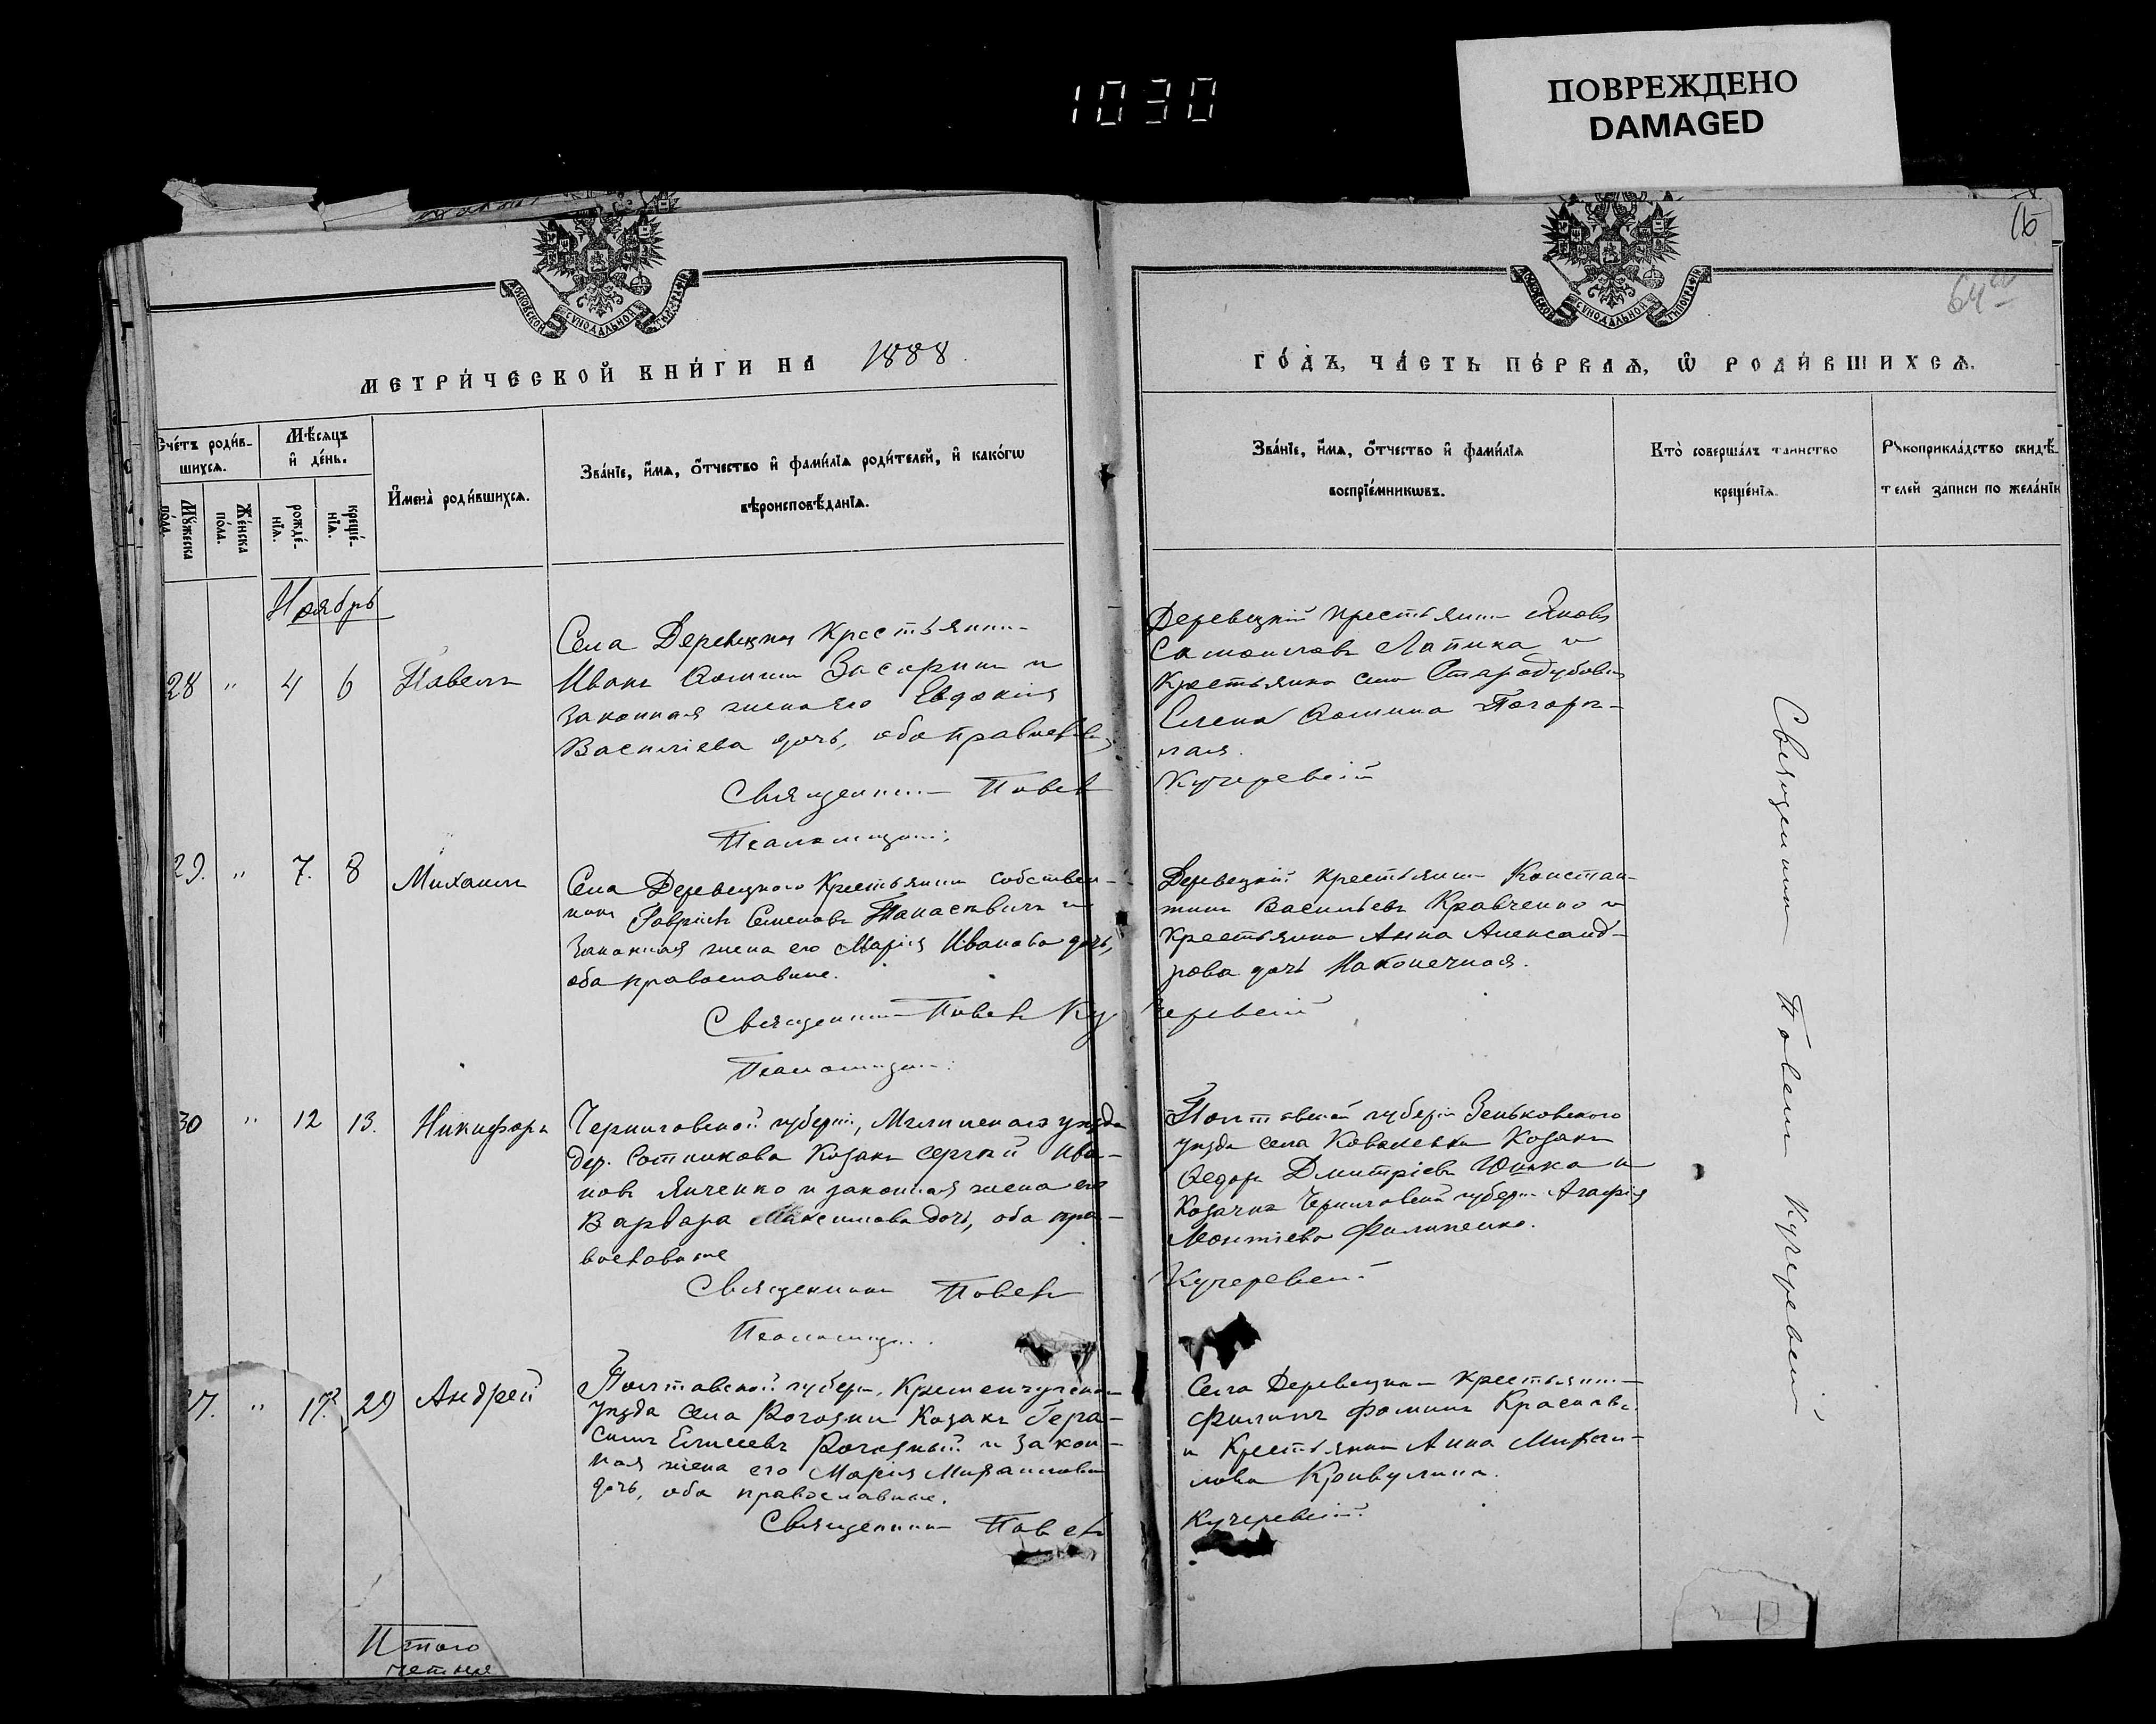 1030
ПОВРЕЖДЕНО
DAMAGED
16
64
МОСКОВСКОЙ СѴНОДАЛЬНОЙ ТИПОГРАФІИ
МОСКОВСКОЙ СѴНОДАЛЬНОЙ ТИПОГРАФІИ
МЕТРИ́ЧЕСКОЙ КНИ́ГИ НА 1888.
ГО́ДЪ, ЧА́СТЬ ПЕ́РВАЯ, Ѿ РОДИ́ВШИХСЯ.
Сче́тъ роди́в-
шихся.
Му́жеска
по́ла.
Же́нска
по́ла.
Мѣ́сяцъ
и де́нь.
рожде́-
нія.
креще́-
нія.
Имена̀ роди́вшихся.
Зва́ніе, и́мя, о́тчество и фами́лія роди́телей, и како́гѡ
вѣроисповѣ́данія.
Зва́ніе, и́мя, о́тчество и фами́лія
воспріе́мникωвъ.
Кто̀ соверша́лъ таинство
креще́нія.
Рꙋкоприкла́дство свидѣ́-
телей записи по жела́нію
Ноябрь
28 " 4 6 Павелъ
Села Деревецкаго Крестьянинъ
Иванъ Ѳоминъ и
законная жена его Евдокія
Василіева дочь, оба православные
Священникъ Павелъ
Псаломщикъ
Деревецкій крестьянинъ Яковъ
Самойловъ Лапика и
Крестьянка села Стародубовки
Елена Ѳомина Погорѣ-
лая.
Кучеревскій
29. " 7. 8 Михаилъ
Села Деревецкаго Крестьянинъ собствен-
никъ Гавріилъ Семеновъ и
законная жена его Марія Иванова дочь,
оба православные.
Священникъ Павелъ Ку
Псаломщикъ
Деревецкій крестьянинъ Констан-
тинъ Васильевъ Кравченко и
крестьянка Анна Александ-
рова дочь Наконечная.
черевскій
30 " 12 13. Никифоръ
Черниговской губерніи, Мглинскаго уѣзда
дер. Сотникова Козакъ Сергѣй Ива-
новъ Янченко и законная жена его
Варвара Максимова дочь, оба пра-
вославные
Священникъ Павелъ
Псаломщикъ
Полтавской губерніи Зеньковскаго
уѣзда села Ковалевки Козакъ
Ѳедоръ Дмитріевъ и
Козачка Черниговской губерніи Агафія
Леонтіева Филипенко.
Кучеревскій
" 17. 29 Андрей
Полтавской губерніи, Кременчугскаго
уѣзда села Рогозки Козакъ Гера-
симъ Елисеевъ Рогозный и закон-
ная жена его Марія Михаилова
дочь, оба православные.
Священникъ Павелъ
Села Деревецкаго крестьянинъ
Филипъ Фоминъ
и Крестьянка Анна Михаи-
лова Кривулина.
Кучеревскій
Священникъ Павелъ Кучеревскій
Итого